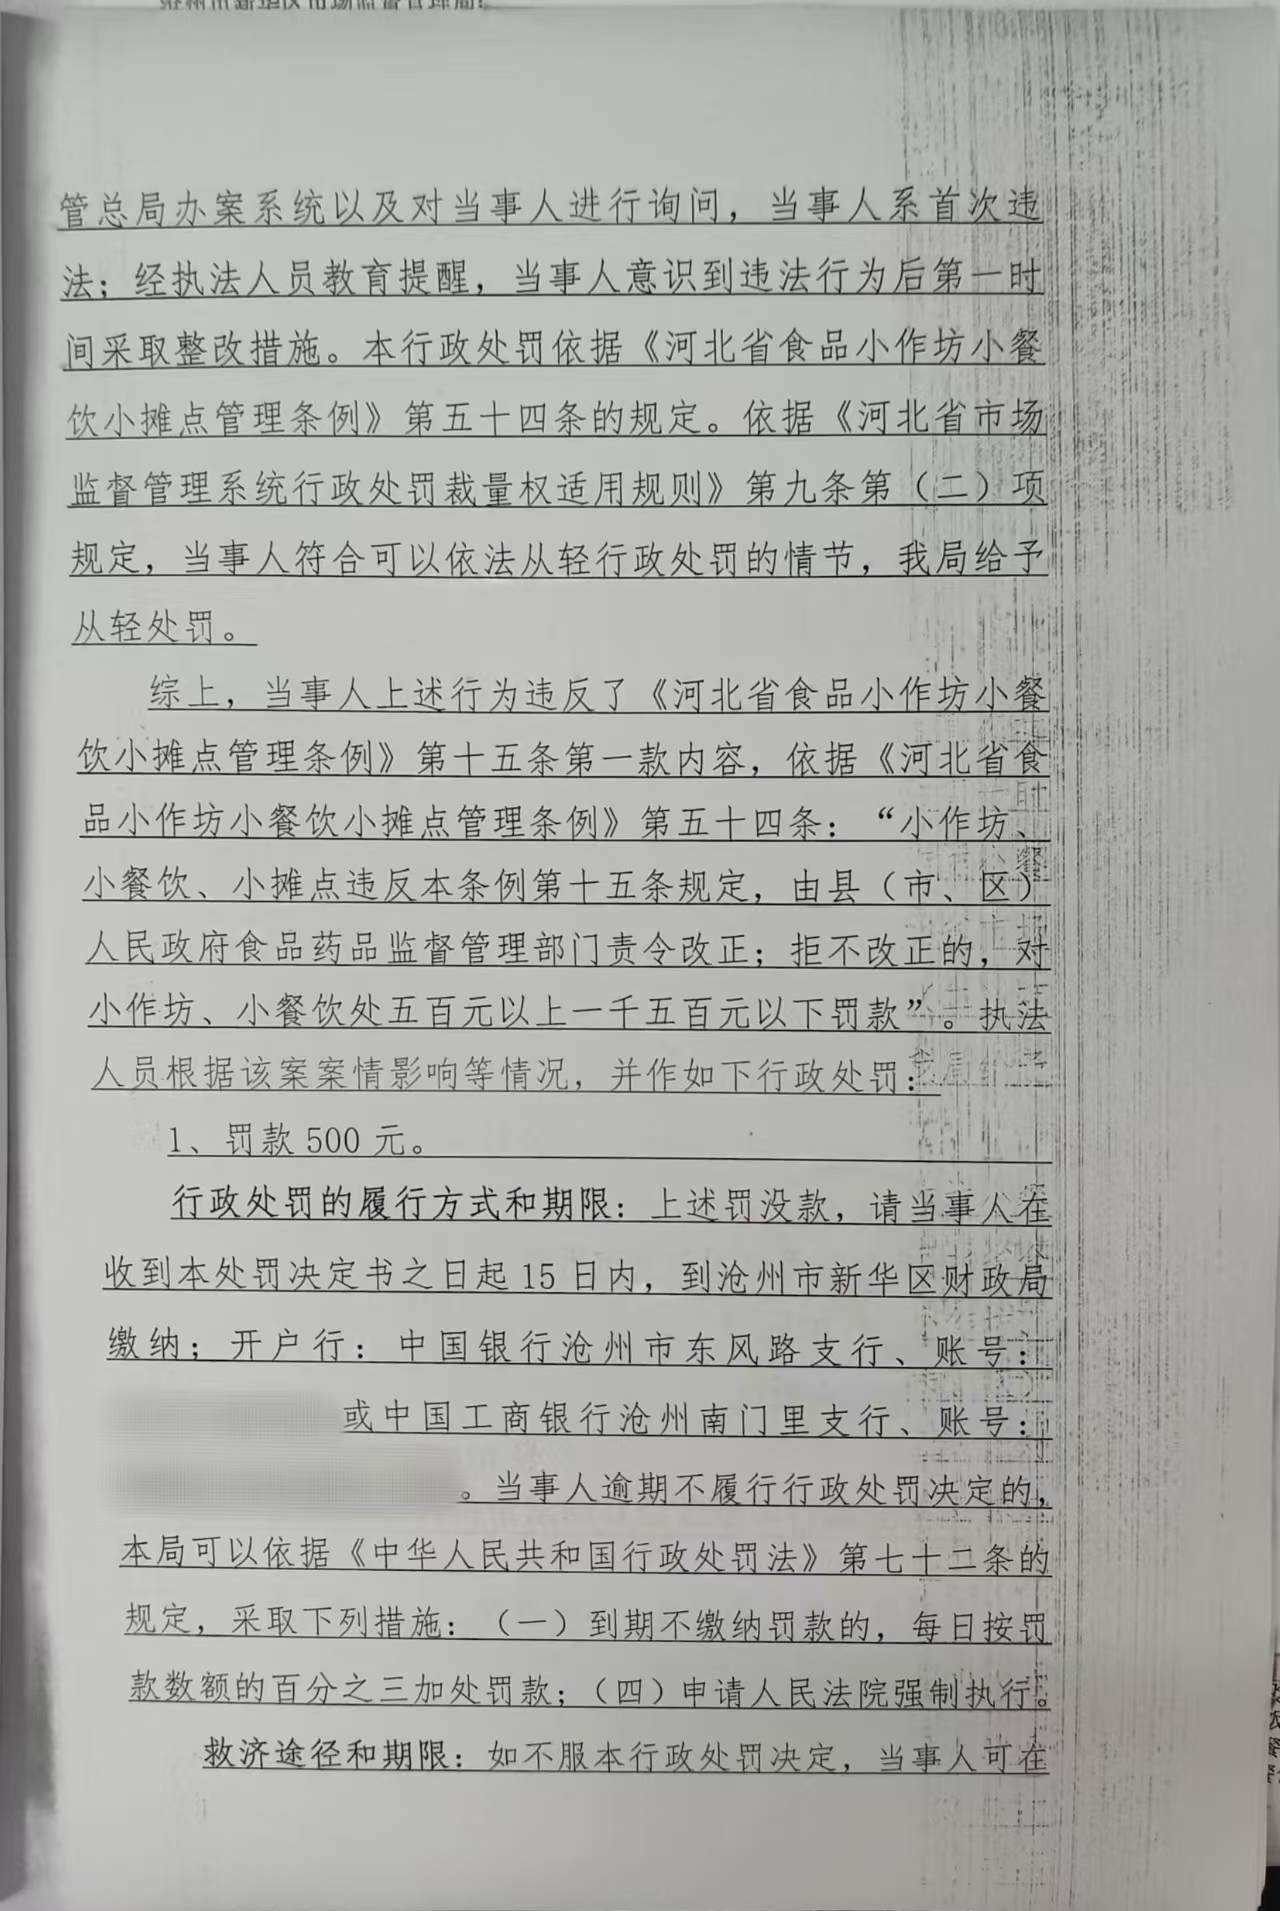 管总局办案系统以及对当事人进行询问，当事人系首次违
法；经执法人员教育提醒，当事人意识到违法行为后第一时
间采取整改措施。本行政处罚依据《河北省食品小作坊小餐
饮小摊点管理条例》第五十四条的规定。依据《河北省市场
监督管理系统行政处罚裁量权适用规则》第九条第（二）项
规定，当事人符合可以依法从轻行政处罚的情节，我局给予
从轻处罚。
综上，当事人上述行为违反了《河北省食品小作坊小餐
饮小摊点管理条例》第十五条第一款内容，依据《河北省食
品小作坊小餐饮小摊点管理条例》第五十四条：“小作坊、
小餐饮、小摊点违反本条例第十五条规定，由县（市、区）
人民政府食品药品监督管理部门责令改正；拒不改正的，对
小作坊、小餐饮处五百元以上一千五百元以下罚款”。执法
人员根据该案案情影响等情况，并作如下行政处罚：
1、罚款 500 元。
行政处罚的履行方式和期限：上述罚没款，请当事人在
收到本处罚决定书之日起 15 日内，到沧州市新华区财政局
缴纳；开户行：中国银行沧州市东风路支行、账号：
或中国工商银行沧州南门里支行、账号：
。当事人逾期不履行行政处罚决定的，
本局可以依据《中华人民共和国行政处罚法》第七十二条的
规定，采取下列措施：（一）到期不缴纳罚款的，每日按罚
款数额的百分之三加处罚款；（四）申请人民法院强制执行。
救济途径和期限：如不服本行政处罚决定，当事人可在